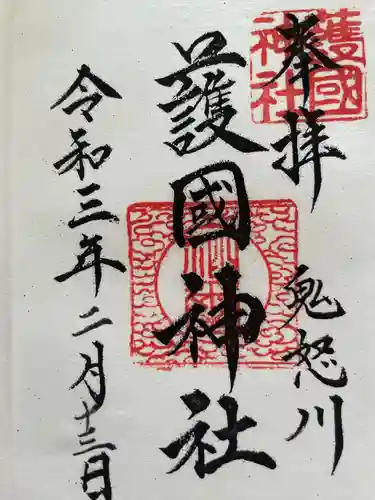 奉拝
鬼怒川
護國神社
護國神社
令和三年二月十三日